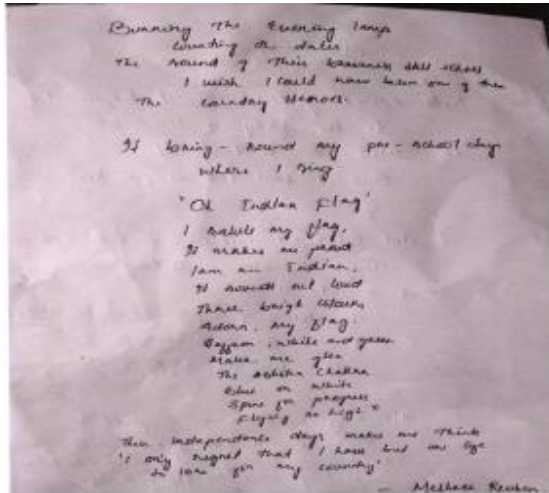 Burning The Evening lamp
Counting the dates
The sound of their braveness still echoes
I wish I could have been one of them
The country
It bring - round my pre - school days
where I sing
"Oh Indian Flag"
I salute my flag,
It makes me proud
I am an Indian,
It sounds out loud
Three brigh colours
Adorn my flag.
Saffron, white and green
Make me glee
The Ashoka Chakra
Blue on white
Spins for progress
Flying so high"
Then independence days makes me Think
"I only regret that I have but one life
to lose for my country"
— Meshack Reuben